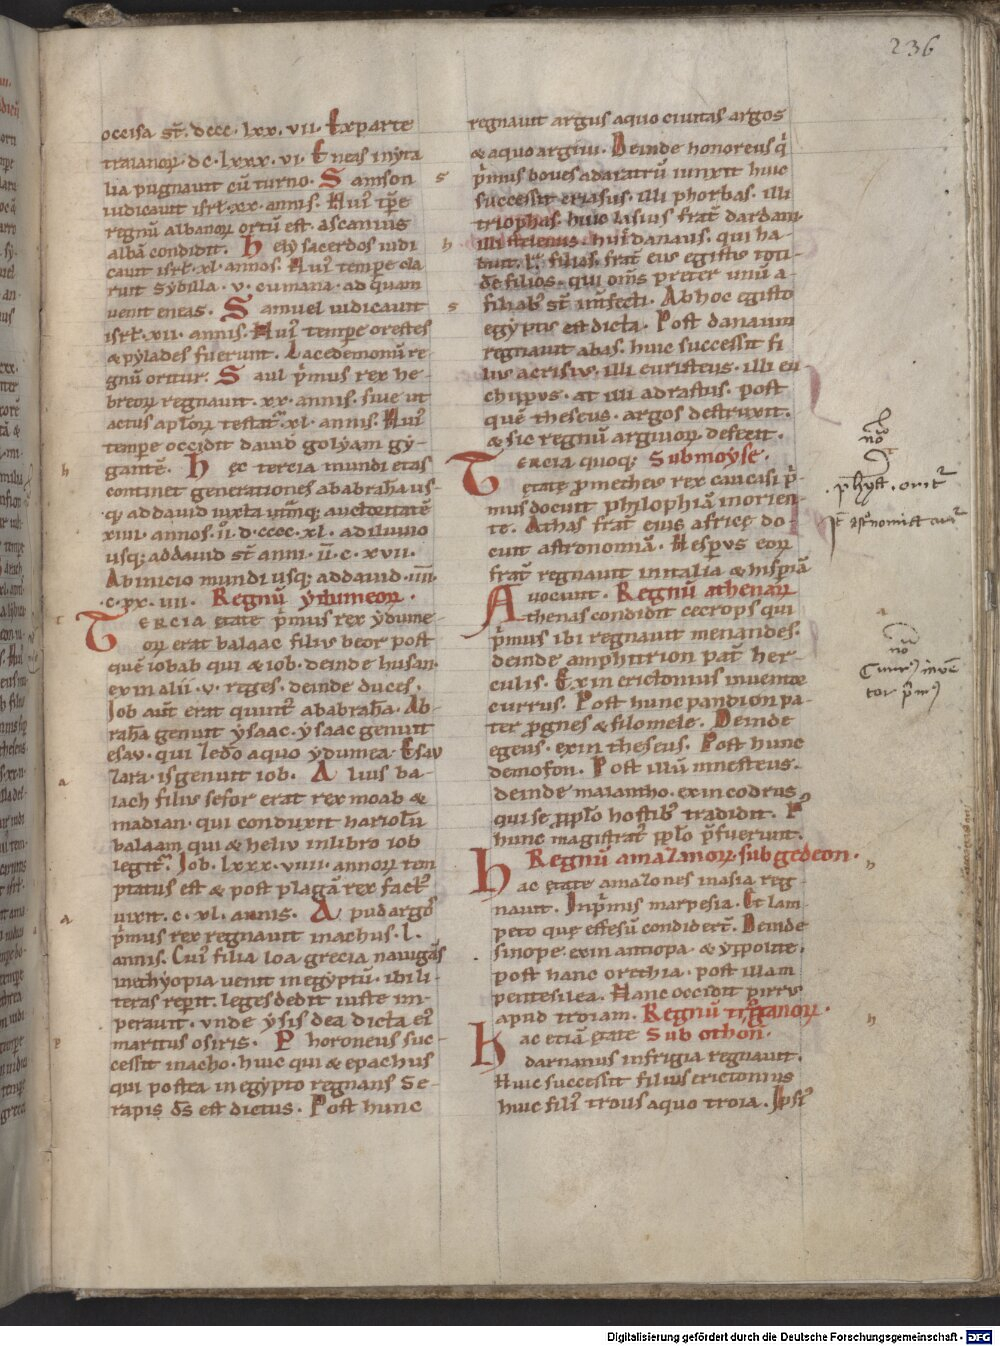 236
occisa st̄. dccc. lxx. vii. Ex parte
traianoꝝ. dc. lxxx. vi. Eneas in yta
lia pugnauit cū turno. Samson
iudicauit isrł. xx. annis. Hui' tp̄re
regnū albanoꝝ ortū est. ascanius
albā condidit. Hely sacerdos iudi
cauit isrł. xl. annos. Hui' tempe cla
ruit sybilla. v. cumana. ad quam
uenit eneas. Samuel iudicauit
isrł. xii. annis. Hui' tempe orestes
& pylades fuerunt. Lacedemonū re
gnū oritur. Saul p̄mus rex he-
breoꝝ regnauit. xx. annis. siue ut
actus apl'oꝝ testat̄. xl. annis. Hui'
tempe occidit dauid golyam gy-
gantē. Hęc tercia mundi etas
continet generationes ab abrahā us-
q; ad dauid iuxta utrāq; auctoritatē
xiiii. annos. ii. d. cccc. xl. a diluuio
usq; ad dauid st̄ anni. ii. c. xvii.
Ab inicio mundi usq; ad dauid. iiii.
Regnū ydumeoꝝ.
Tercia etate p̄mus rex ydume
oꝝ erat balaac filius beor post
quē iobab qui & iob. deinde husan.
exin alii. v. reges. deinde duces.
Job aut̄ erat quint' ab abrahā. Ab-
rahā genuit ysaac. ysaac genuit
esau. qui & edō a quo ydumea. Esau
zara. is genuit iob. Alius ba-
lach filius sefor erat rex moab &
madian. qui conduxit hariolū
balaam qui & heliu in libro iob
legit'. Job. lxxx. viiii. annoꝝ tem
ptatus est & post plagā rex fact'
uixit. c. xl. annis. Apud argos
p̄mus rex regnauit inachus. l.
annis. Cui' filia Ioa grecia nauigās
in ethyopia uenit in egyptū. ibi li-
teras reperit. leges dedit iuste im-
perauit. vnde ysis dea dicta ei'
maritus osiris. Phoroneus suc-
cessit inacho. huic qui & epachus
qui postea in egypto regnans Se-
rapis ds̄ est dictus. Post hunc
regnauit argus a quo ciuitas argos
& a quo argiui. Deinde honoreus q'
p̄mus boues ad aratrū iunxit huic
successit eriasus. illi phorbas. illi
triophas. huic Iasius frat̄ dardani
illi stelenus. huic danaus. qui ha-
buit. l. filias. frat̄ eius egistus toti-
dē filios. qui om̄s preter unū a
filiab' st̄ inifecti. Ab hoc egisto
egyptus est dicta. Post danaum
regnauit abas. huic successit fi
lius acrisius. illi euristeus. illi eu
chipus. at illi adrastus. post
quē theseus. argos destruxit.
& sic regnū argiuoꝝ defecit.
Tercia quoq; Sub moyse.
etate prometheus rex caucasi p̄
mus docuit philosophiā in orien
te. Athas frat̄ eius africę do-
cuit astronomiā. Hesperus eoꝝ
frat̄ regnauit in italia & hisp̄iā
uocauit. Regnū athenaꝝ
Athenas condidit cecrops qui
p̄mus ibi regnauit menandes.
deinde amphitrion pat̄ her-
culis. Exin erictonius inuentor
currus. Post hunc pandion pa-
ter prognes & filomele. Deinde
egeus. exin theseus. Post hunc
demofon. Post illū mnesteus.
deinde maiantho. exin codrus
qui se p̄ pl'o hostib' tradidit. P'
hunc magistrat' pl'o p̄fuerunt.
Regnū amazonoꝝ. sub gedeon.
Hac etate amazones in asia reg-
nauit. Inp̄mis marpesia. Et lam
peto quę effesū condidert̄. Deinde
sinope. exin antiopa. & yppolite.
post hanc orethia. post illam
pentesilea. Hanc occidit pirrus
apud troiam. Regnū troianoꝝ.
Hac etiā etate Sub othoni.
darnanus in frigia regnauit.
Huic successit filius erictonius
huic fili' trous a quo troia. Ipsi'
Digitalisierung gefördert durch die Deutsche Forschungsgemeinschaft - DFG